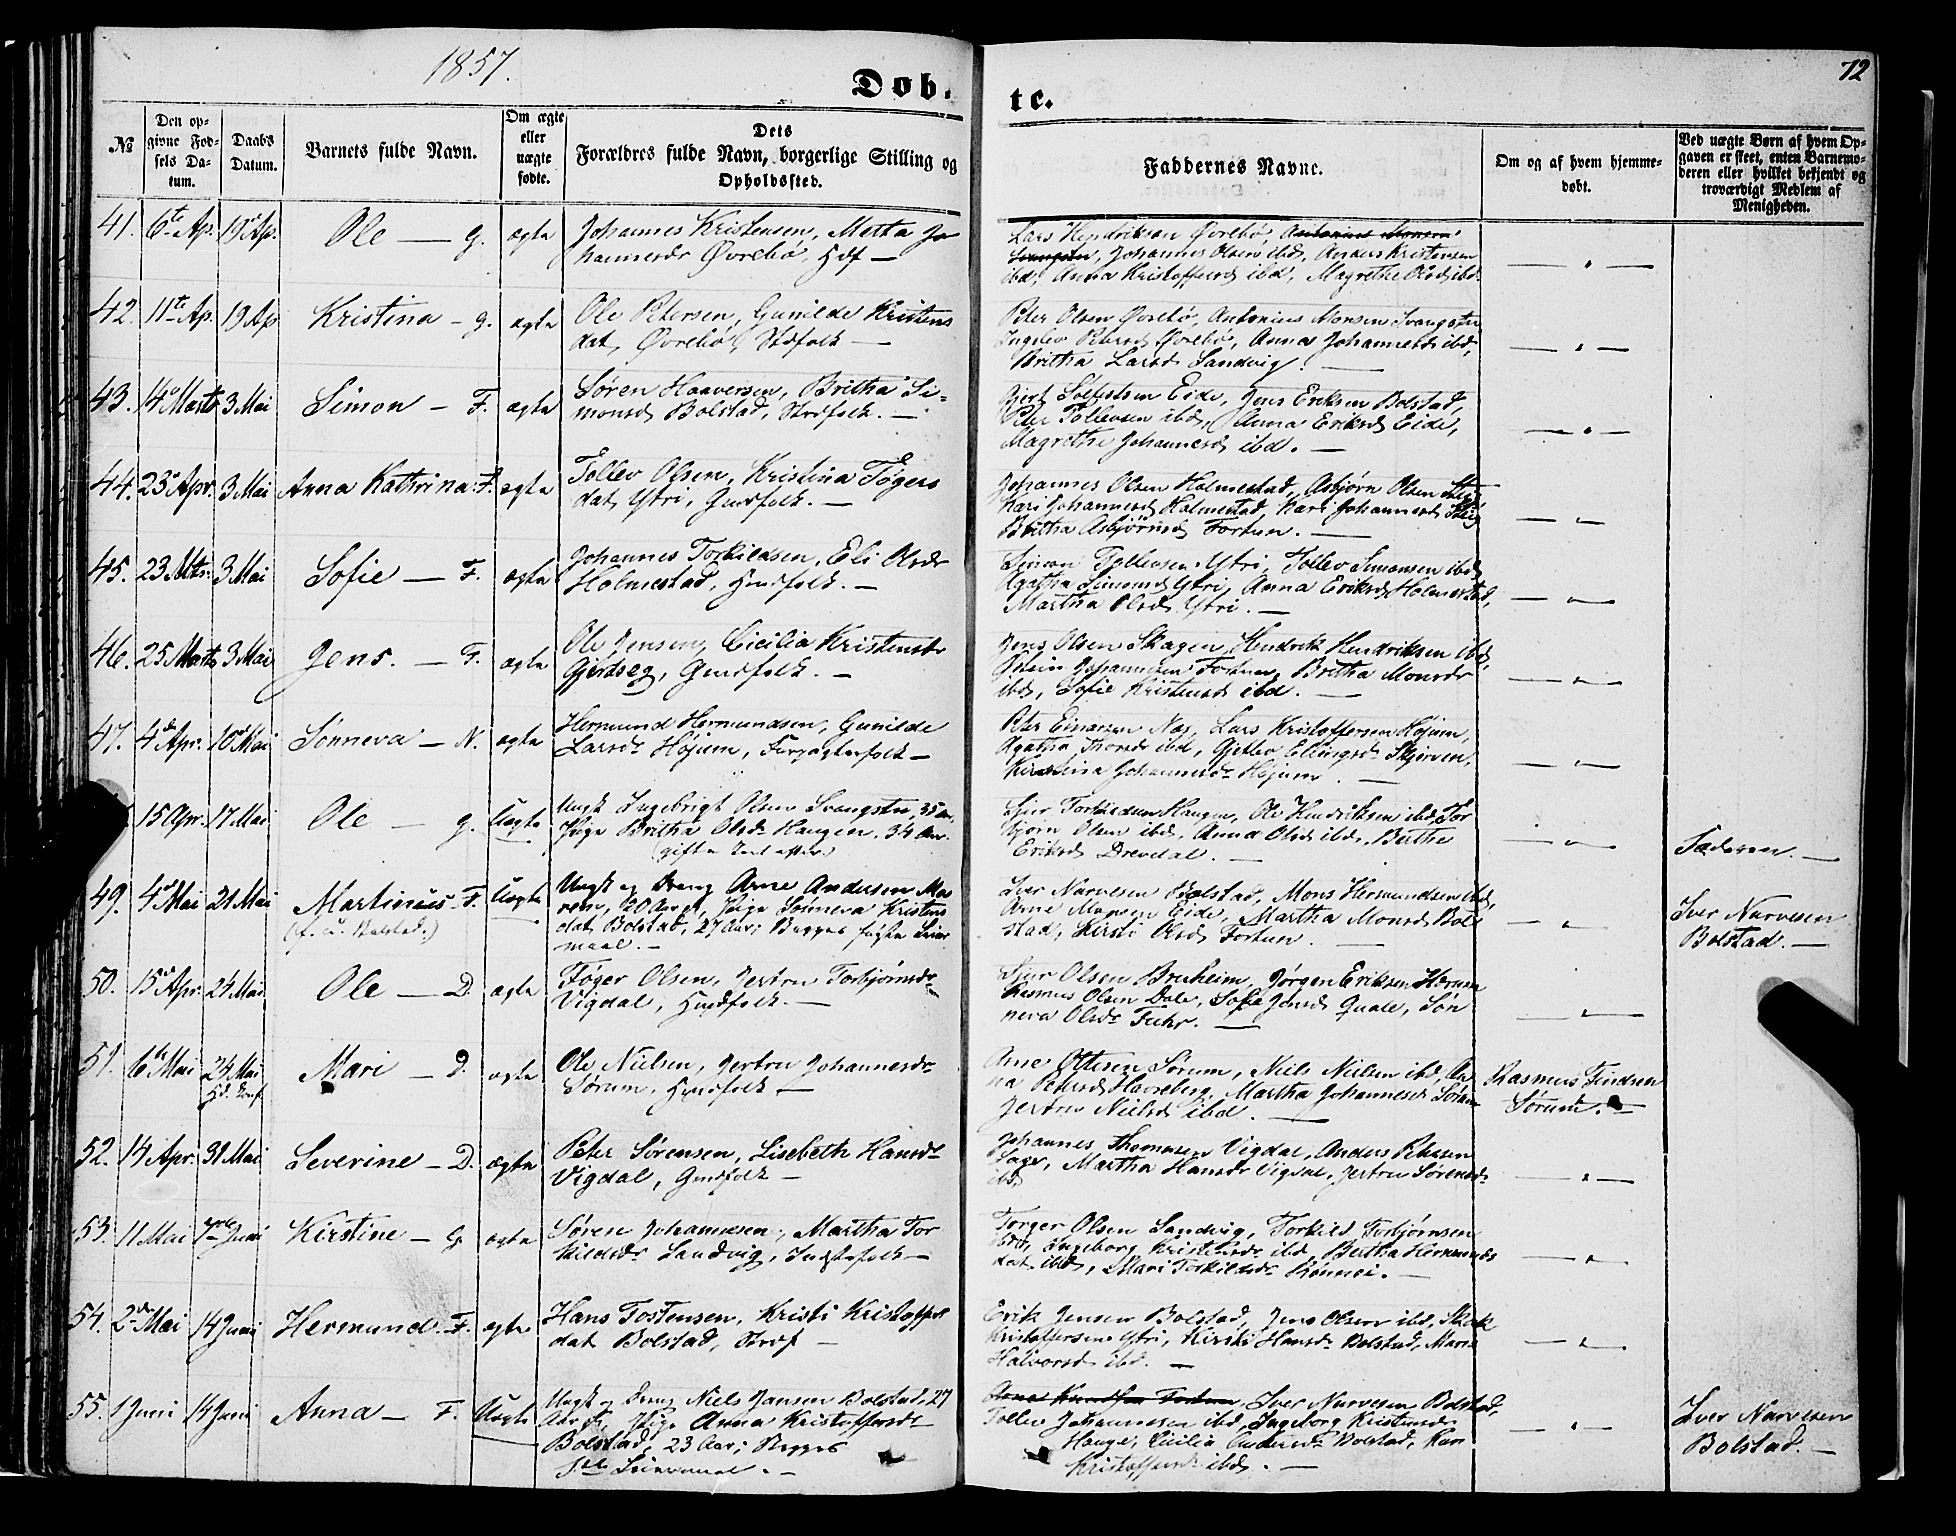 1857.
72
Døb-
te.
№
Den op-
givne Fød-
sels Da-
tum.
Daabs
Datum.
Barnets fulde Navn.
Om ægte
eller
uægte
fødte.
Dets
Forældres fulde Navn, borgerlige Stilling og
Opholdssted.
Faddernes Navne.
Om og af hvem hjemme-
døbt.
Ved uægte Børn af hvem Op-
gaven er skeet, enten Barnemo-
deren eller hvilket bekjendt og
troværdigt Medlem af
Menigheden.
41. 6te Ap. 19 Ap. Ole — G. ægte
Johannes Kristensen, Marta Jo
hannesdr Øvrebø, Hdf —
Lars Hendriksen Øvrebø, Antonius Monsen
Svangstu, Johannes Olsen ibd, Anders Kristensen
ibd, Anna Kristoffersd ibd, Magrethe Olsd ibd
42. 11te Ap. 19 Ap Kristina — G. ægte
Ole Petersen, Gunilde Kristens
dat, Øvrebø, Stdfolk —
Peter Olsen Øvrebø, Antonius Monsen Svangstu
Ingelev Petersd Øvrebø, Anna Johannesd ibd,
Britha Larsd Sandvig. —
43. 14 Marts 3 Mai Simon — F. ægte
Søren Haaversen, Britha Si-
monsd Bolstad, Strdfolk. —
Gjert Solfestsen Eide, Jens Eriksen Bolstad,
Peter Tollevsen ibd, Anna Eriksd Eide,
Magrethe Johannesd ibd. —
44. 23 Apr. 3 Mai Anna Kathrina F. ægte
Tollev Olsen, Kristina Føgers
dat Ytri, Gmdfolk. —
Johannes Olsen Holmestad, Asbjørn Olsen
Kari Johannesd Holmestad, Kari Johannesd
Britha Asbjørnsd Fortun. —
45. 23 Mts. 3 Mai Sofie — F. ægte
Johannes Torkildsen, Eli Olsdr
Holmestad, Hmdfolk. —
Simon Tollevsen Ytri, Tollev Simonsen ibd
Agatha Simonsd Ytri, Anna Eriksd Holmestad,
Martha Olsd Ytri. —
46. 25 Marts 3 Mai Jens. — F. ægte
Ole Jensen, Cicilia Kristensdr
Gjerdseg, Gmdfolk. —
Jens Olsen Skagen, Hendrik Hendriksen ibd,
Johannesen Fortun, Britha Monsdr
ibd, Sofie Kristensd ibd. —
47. 4de Apr. 10 Mai Sønneva — N. ægte
Hermund Hermundsen, Gunilde
Larsdr Høium, Forpagterfolk —
Peter Einarsen Næs, Lars Kristoffersen Høium,
Agatha Thorsd ibd, Gjetlev Ellingsdr Skjerven,
Kirstina Johannesdr Høium. —
15 Apr. 17 Mai Ole — G. Uægte
Ungk Ingebrigt Olsen Svangstu, 35 Aar,
Pige Britha Olsdr Haugen, 34 Aar.
Sjur Torkildsen Haugen, Ole Hendriksen ibd, Tor
bjørn Olsen ibd, Anna Olsd ibd, Britha
Eriksd Drevdal. —
Faderen. —
49. 4de Mai 21 Mai Martinius F. Uægte
(f. a. Bolstad.)
Ungk og Dreng Arne Andersen Mo
ren, 20 Aar, Pige Sønneva Kristens
dat Bolstad, 27 Aar; Begges første Leier
maal. —
Iver Narvesen Bolstad, Mons Hermundsen ibd,
Arne Monsen Eide, Martha Monsd Bol
stad, Kirsti Olsd Fortun. —
Iver Narvesen
Bolstad. —
50. 15 Apr. 24 Mai Ole — D. ægte
Føger Olsen, Jertru Torbjørnsdr
Vigdal, Hmdfolk. —
Sjur Olsen Bruheim, Jørgen Eriksen
Rasmus Olsen Dale, Sofie Jensd Quale, Søn
neva Olsdr Fuhr. —
51. 6te Mai 24 Mai Mari — D. ægte
Ole Nielsen, Jertru Johannesdr
Sørum, Hmdfolk —
Arne Ottesen Sørum, Niels Nielsen ibd, An
na Petersd Havreberg, Martha Johannesd Sørum
Jertru Nielsd ibd. —
Rasmus Findsen
Sørum. —
52. 14 Apr. 31 Mai Severine — D. ægte
Peter Sørensen, Lisebeth Hansdr
Vigdal, Gmdfolk —
Johannes Thomassen Vigdal, Anders Petersen
Martha Hansdr Vigdal, Jertru Sørensdr
ibd
53. 11 Mai Juni Kirstine — G ægte
Søren Johannesen, Martha Tor
kildsdr Sandvig, Indstefolk —
Torger Olsen Sandvig, Torkild Torbjørnsen
ibd, Ingeborg Kristensdr ibd, Britha Hermunds
dat ibd, Mari Torkildsdr Rønnei. —
54. 2den Mai 14 Juni Hermund F. ægte
Hans Tostensen, Kristi Kristoffers
dat Bolstad, Strdf —
Erik Jensen Bolstad, Jens Olsen ibd,
Kristoffersen Ytri, Kirsti Hansdr Bolstad, Mari
Halvorsd ibd. —
55. 1 Juni 14 Juni Anna — F. Uægte
Ungk og Dreng Niels Jansen Bolstad, 27
Aar gl, Pige Anna Kristoffersdr
Bolstad, 23 Aar; Begges
1ste Leiermaal. —
Arne Knudsen Fortun, Iver Narvesen Bolstad,
Tollev Johannessen ibd, Ingeborg Kristensdr
Hauge, Cicilia Bolstad, Kari
Kristoffersdr ibd. —
Iver Narvesen
Bolstad. —